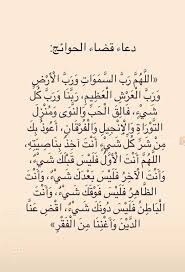 دعاء قضاء الحوائج:
«اللَّهُمَّ رَبَّ السَّمَوَاتِ وَرَبَّ الْأَرْضِ
وَرَبَّ الْعَرْشِ الْعَظِيمِ، رَبَّنَا وَرَبَّ كُلِّ
شَيْءٍ، فَالِقَ الْحَبِّ وَالنَّوَى وَمُنْزِلَ
التَّوْرَاةِ وَالْإِنْجِيلِ وَالْفُرْقَانِ، أَعُوذُ بِكَ
مِنْ شَرِّ كُلِّ شَيْءٍ أَنْتَ آخِذٌ بِنَاصِيَتِهِ،
اللَّهُمَّ أَنْتَ الْأَوَّلُ فَلَيْسَ قَبْلَكَ شَيْءٌ،
وَأَنْتَ الْآخِرُ فَلَيْسَ بَعْدَكَ شَيْءٌ، وَأَنْتَ
الظَّاهِرُ فَلَيْسَ فَوْقَكَ شَيْءٌ، وَأَنْتَ
الْبَاطِنُ فَلَيْسَ دُونَكَ شَيْءٌ، اقْضِ عَنَّا
الدَّيْنَ وَأَغْنِنَا مِنَ الْفَقْرِ»